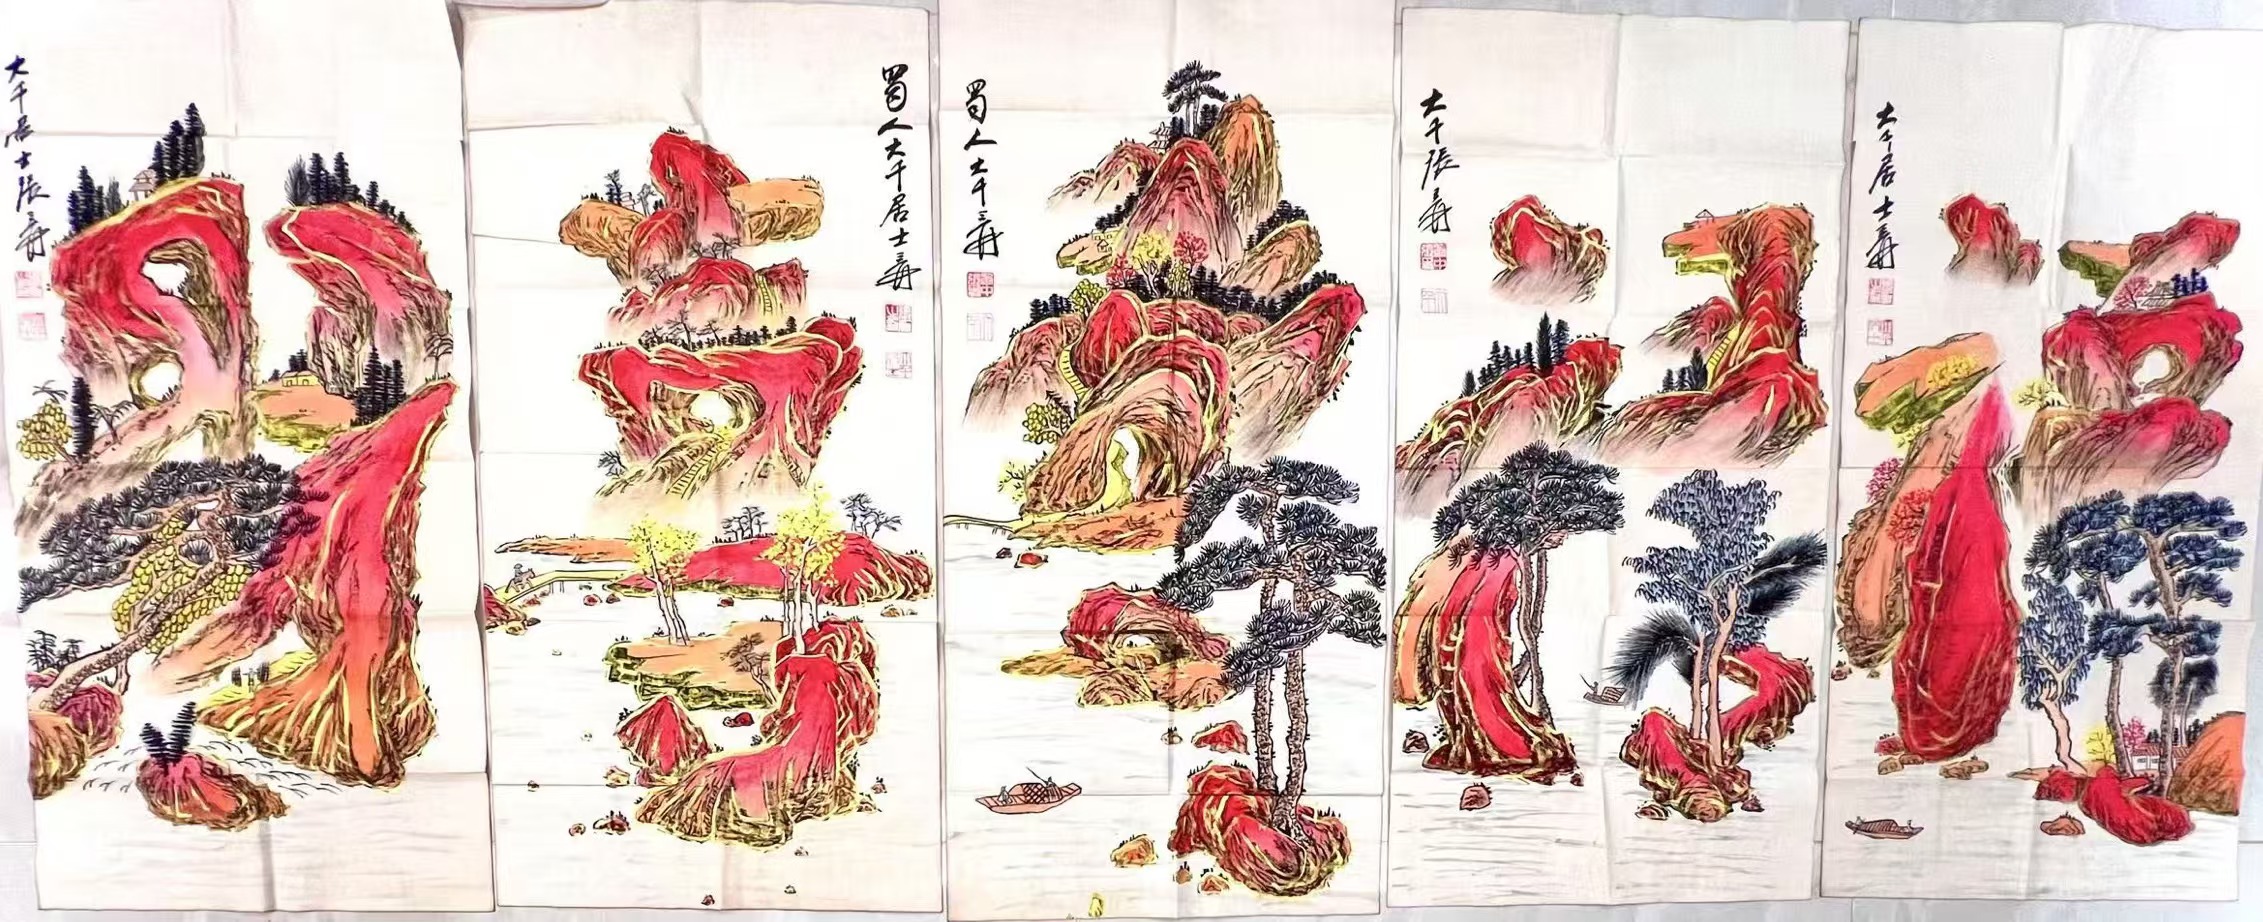 大千居士張爰
蜀人大千居士爰
蜀人大千爰
大千張爰
大千居士爰